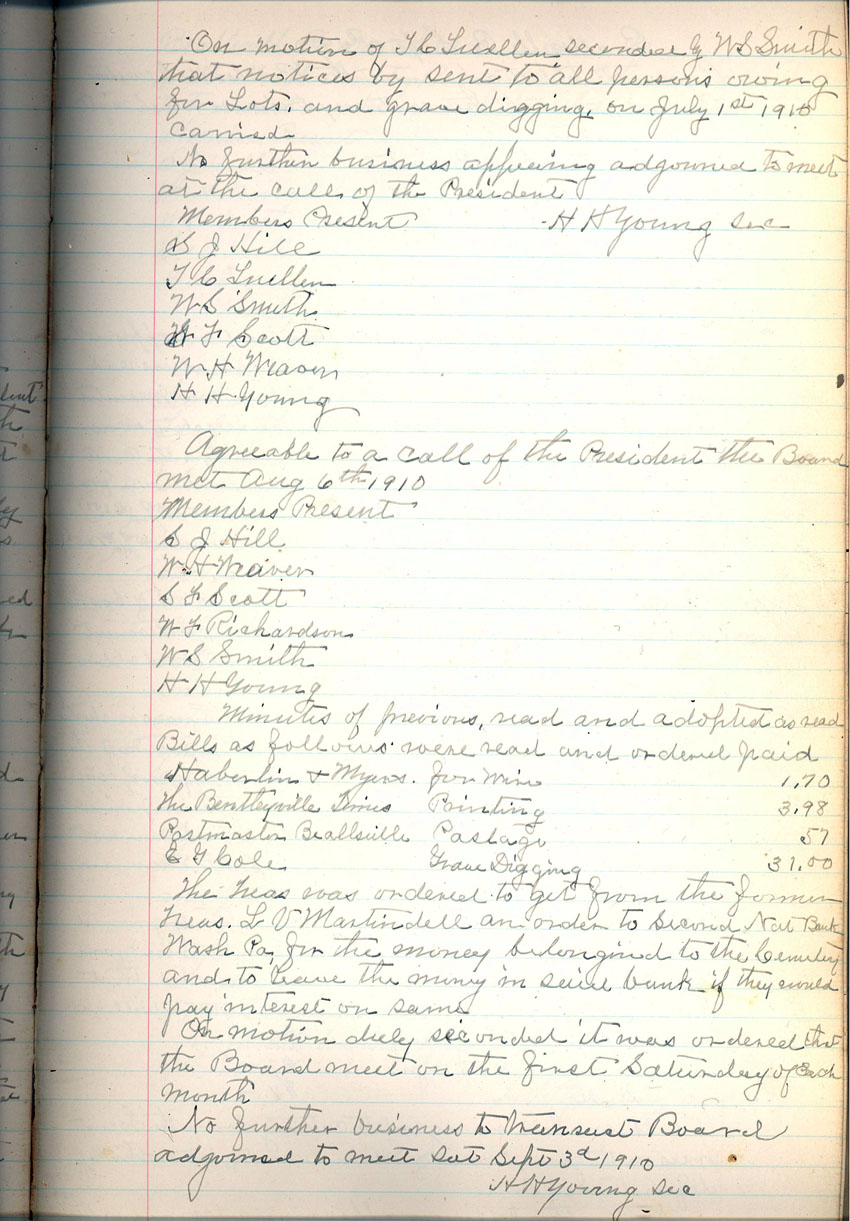 On motion of T C Luellen seconded by W S Smith
that notices by sent to all persons owing
for Lots. and grave digging, on July 1st 1910
Carried
No further business appearing adgourned to meet
at the call of the President
Members Present H H Young Sec
S J Hill
T C Luellen
W S Smith
W F Scott
W H Weaver
H H Young
Agreeable to a call of the President the Board
met Aug 6th 1910
Members Present
S J Hill
W H Weaver
S F Scott
W F Richardson
W S Smith
H H Young
Minutes of previous, read and adopted as read
Bills as follows were read and ordered paid
Haberlin & Myers. for Wire 1.70
The Bentleyville Times Printing 3.98
Postmaster Beallsville Postage 57
E G Cole Grave Digging 31.00
The Treas was ordered to get from the former
Treas. L V Martindell an order to Second Nat Bank
Wash Pa, for the money belongind to the Cemetery
and to leave the money in said bank if they would
pay interest on same
On motion duly seconded it was ordered that
the Board meet on the first Saturday of Each
month
No further business to transact Board
adjorned to meet Sat Sept 3d 1910
H H Young Sec